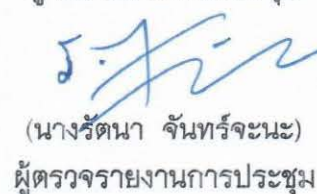 (นางรัตนา จันทร์จะนะ)
ผู้ตรวจรายงานการประชุม